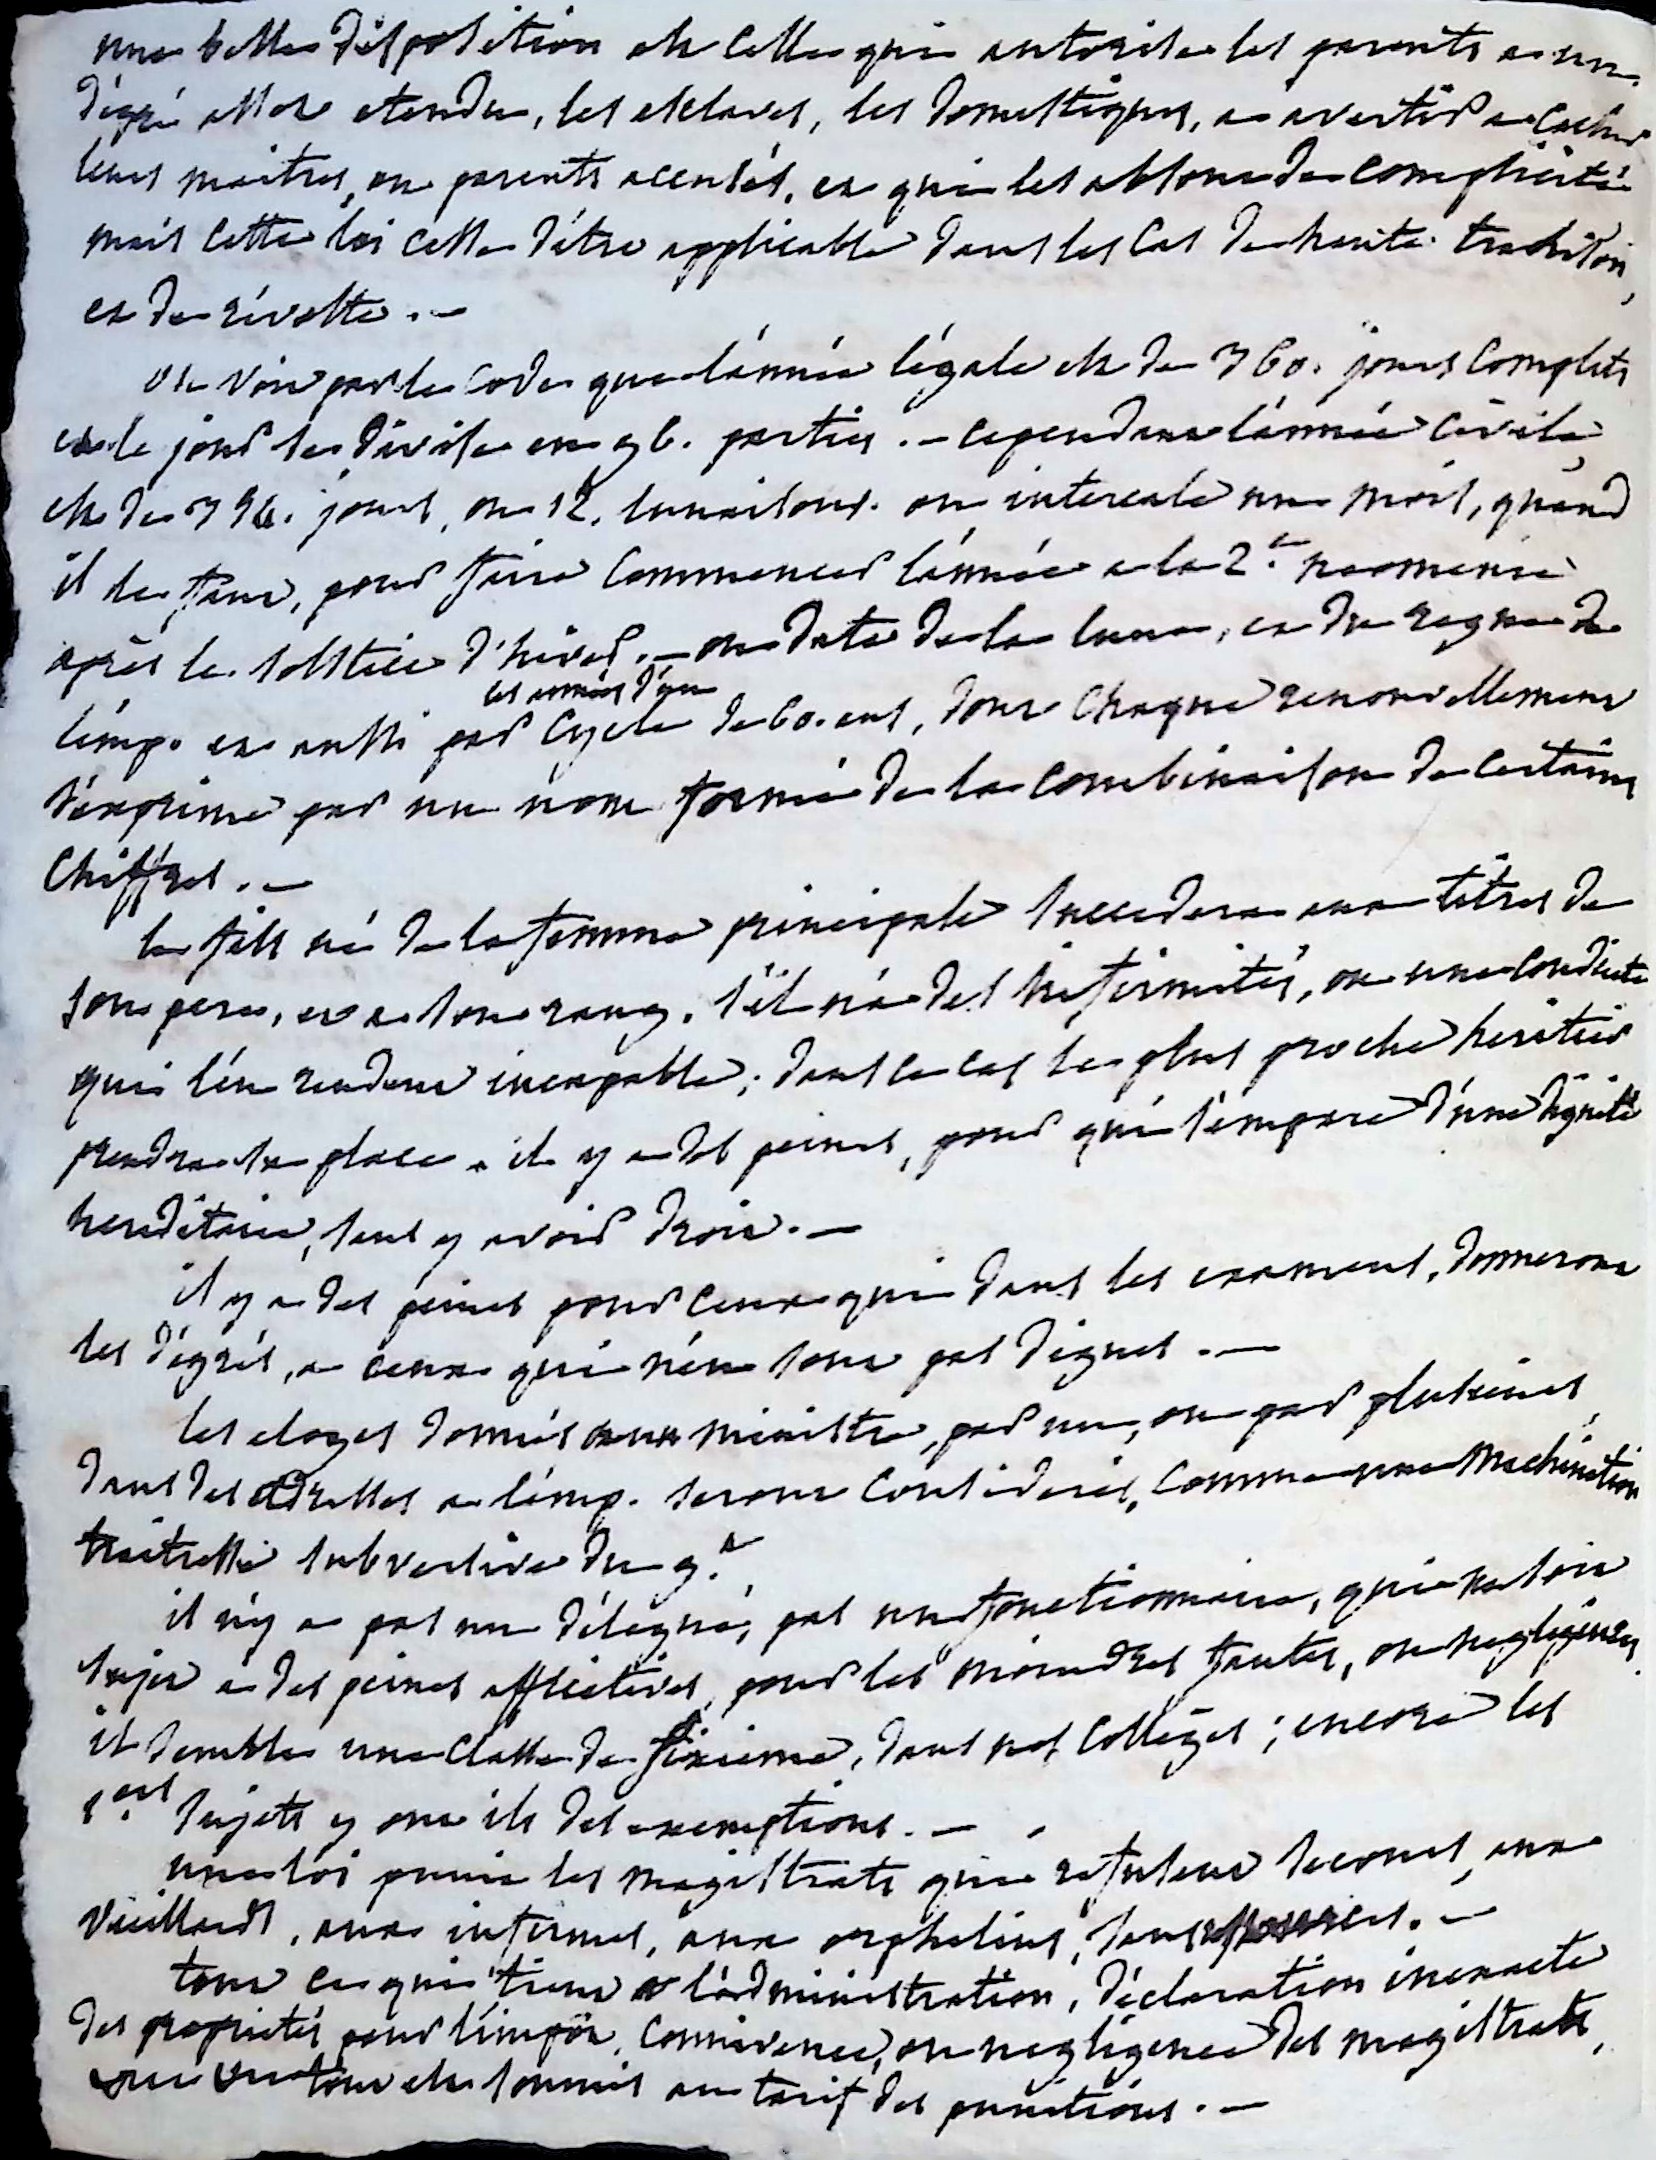 une belle disposition est celle qui autorise les parents a un
dégré assez etendu, les esclaves, les domestiques, a avertir a cacher
leurs maitres, ou parents accusés, et qui les absout de complicité
mais cette loi cesse d'être applicable dans les cas de haute trahison,
et de révolte. —
on voit par le code que l'année légale est de 360. jours complets
et le jour se divise en 96. parties. — cependant l'année civile,
est de 354. jours, ou 12. lunaisons. on intercale un mois, quand
il le faut, pour faire commencer l'année a la 2.e neomenie
après le solstice d'hiver. — on date de la lune, et du regne de
les années d'un
l'emp. et aussi par cycle de 60. ans, dont chaque renouvellement
s'exprime par un nom formé de la combinaison de certains
chiffres. —
le fils né de la femme principale succedera aux titres de
son pere, et a son rang. s'il n'a des infirmités, ou une conduite
qui l'en rendent incapable; dans ce cas le plus proche heritier
prendra sa place. il y a des peines, pour qui s'empare d'une dignité
hereditaire, sans y avoir droit. —
il y a des peines pour ceux qui dans les examens, donneront
les dégrés, a ceux qui n'en sont pas dignes. —
les eloges donnés aux ministre, par un, ou par plusieurs,
dans des adresses a l'emp. seront considerés, comme une machination
traitresse subversive du g.t
il n'y a pas un délégué, pas un fonctionnaire, qui ne soit
sujet a des peines afflictives, pour les moindres fautes, ou negligences,
il semble une classe de sixieme, dans nos colleges; encore les
1.ers sujets y ont ils des exemptions. —
une loi punit les magistrats qui refusent secours, aux
vieillards, aux infirmes, aux orphelins, sans
tout ce qui tient a l'administration, déclaration inexacte
des proprietés pour l'impôt, connivence, ou negligence des magistrats,
tout est soumis au tarif des punitions. —